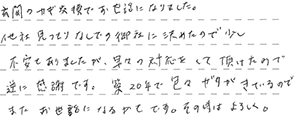 玄関のカギ交換でお世話になりました。
他社見つもりなしでの御社に決めたので少し
不安もありましたが、早々の対応をして頂けたので
逆に感謝です。築20年で色々ガタがきているので
またお世話になるかもです。その時はよろしく。